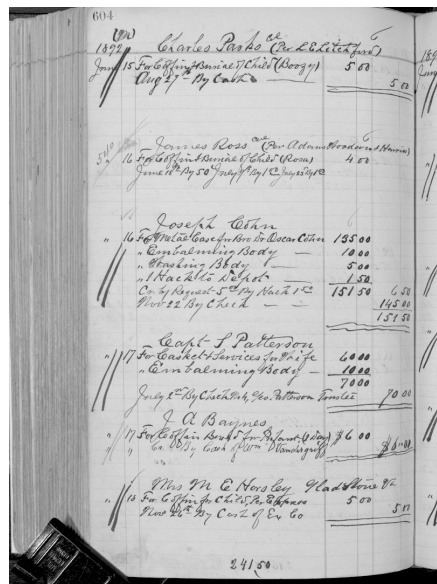 604
1892 Charles Parks col (Per L E Litchford)
June 15 For Coffin & Burial of Child (Boozy) 5 00
Aug 27th By Cash 5 00
James Ross col (Per Adams Woodson & Harris)
" 16 For Coffin & Burial of Child (Rosa) 4 00
June 18th By 50 July 9th By 1 00
Joseph Cohn
" 16 For Metal Case for Bro Dr Oscar Cohn 135 00
" Embalming Body 10 00
" Washing Body 5 00
" 1 Hack to Depot 1 50
Cr by Request 5 00 By Hack 1 50 151 50 6 50
Nov 22 By Check 145 00
151 50
Capt S Patterson
" 17 For Casket & Services for Wife 60 00
" Embalming Body 10 00
70 00
July 2nd By Check Geo. Patterson Trustee 70 00
J A Baynes
" 17 For Coffin Box &c for Infant (1 Day) $6 00
" Cr By Cash of Wm Vandergriff $6 00
Mrs M E Horsley Gladstone Va
" 18 For Coffin for Child, Per Express 5 00
Nov 26th By Cash of Ex Co 5 00
241 50